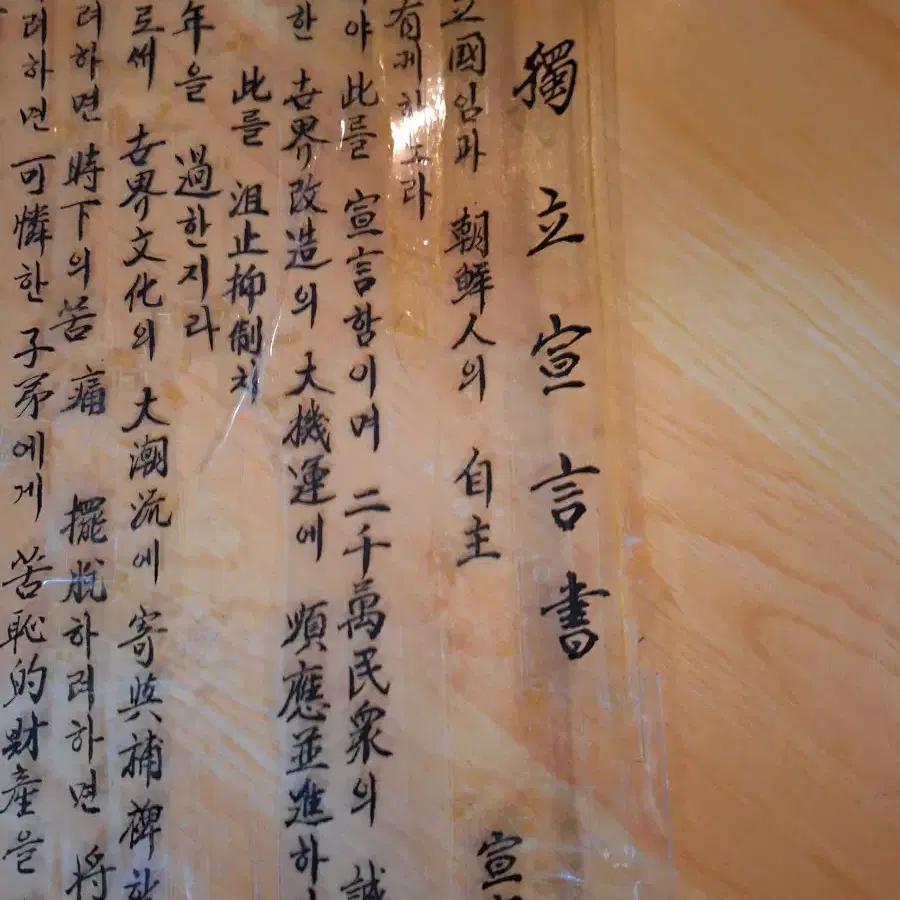 獨立宣言書
國임과 朝鮮人의 自主 宣
有케하노라
야 此를 宣言함이며 二千萬民衆의 誠
한 世界改造의 大機運에 順應並進하
此를 沮止抑制치
年을 過한지라
로써 世界文化의 大潮流에 寄與補裨할
려하면 時下의 苦痛 擺脫하려하면 將
려하면 可憐한 子弟에게 苦恥的財産을